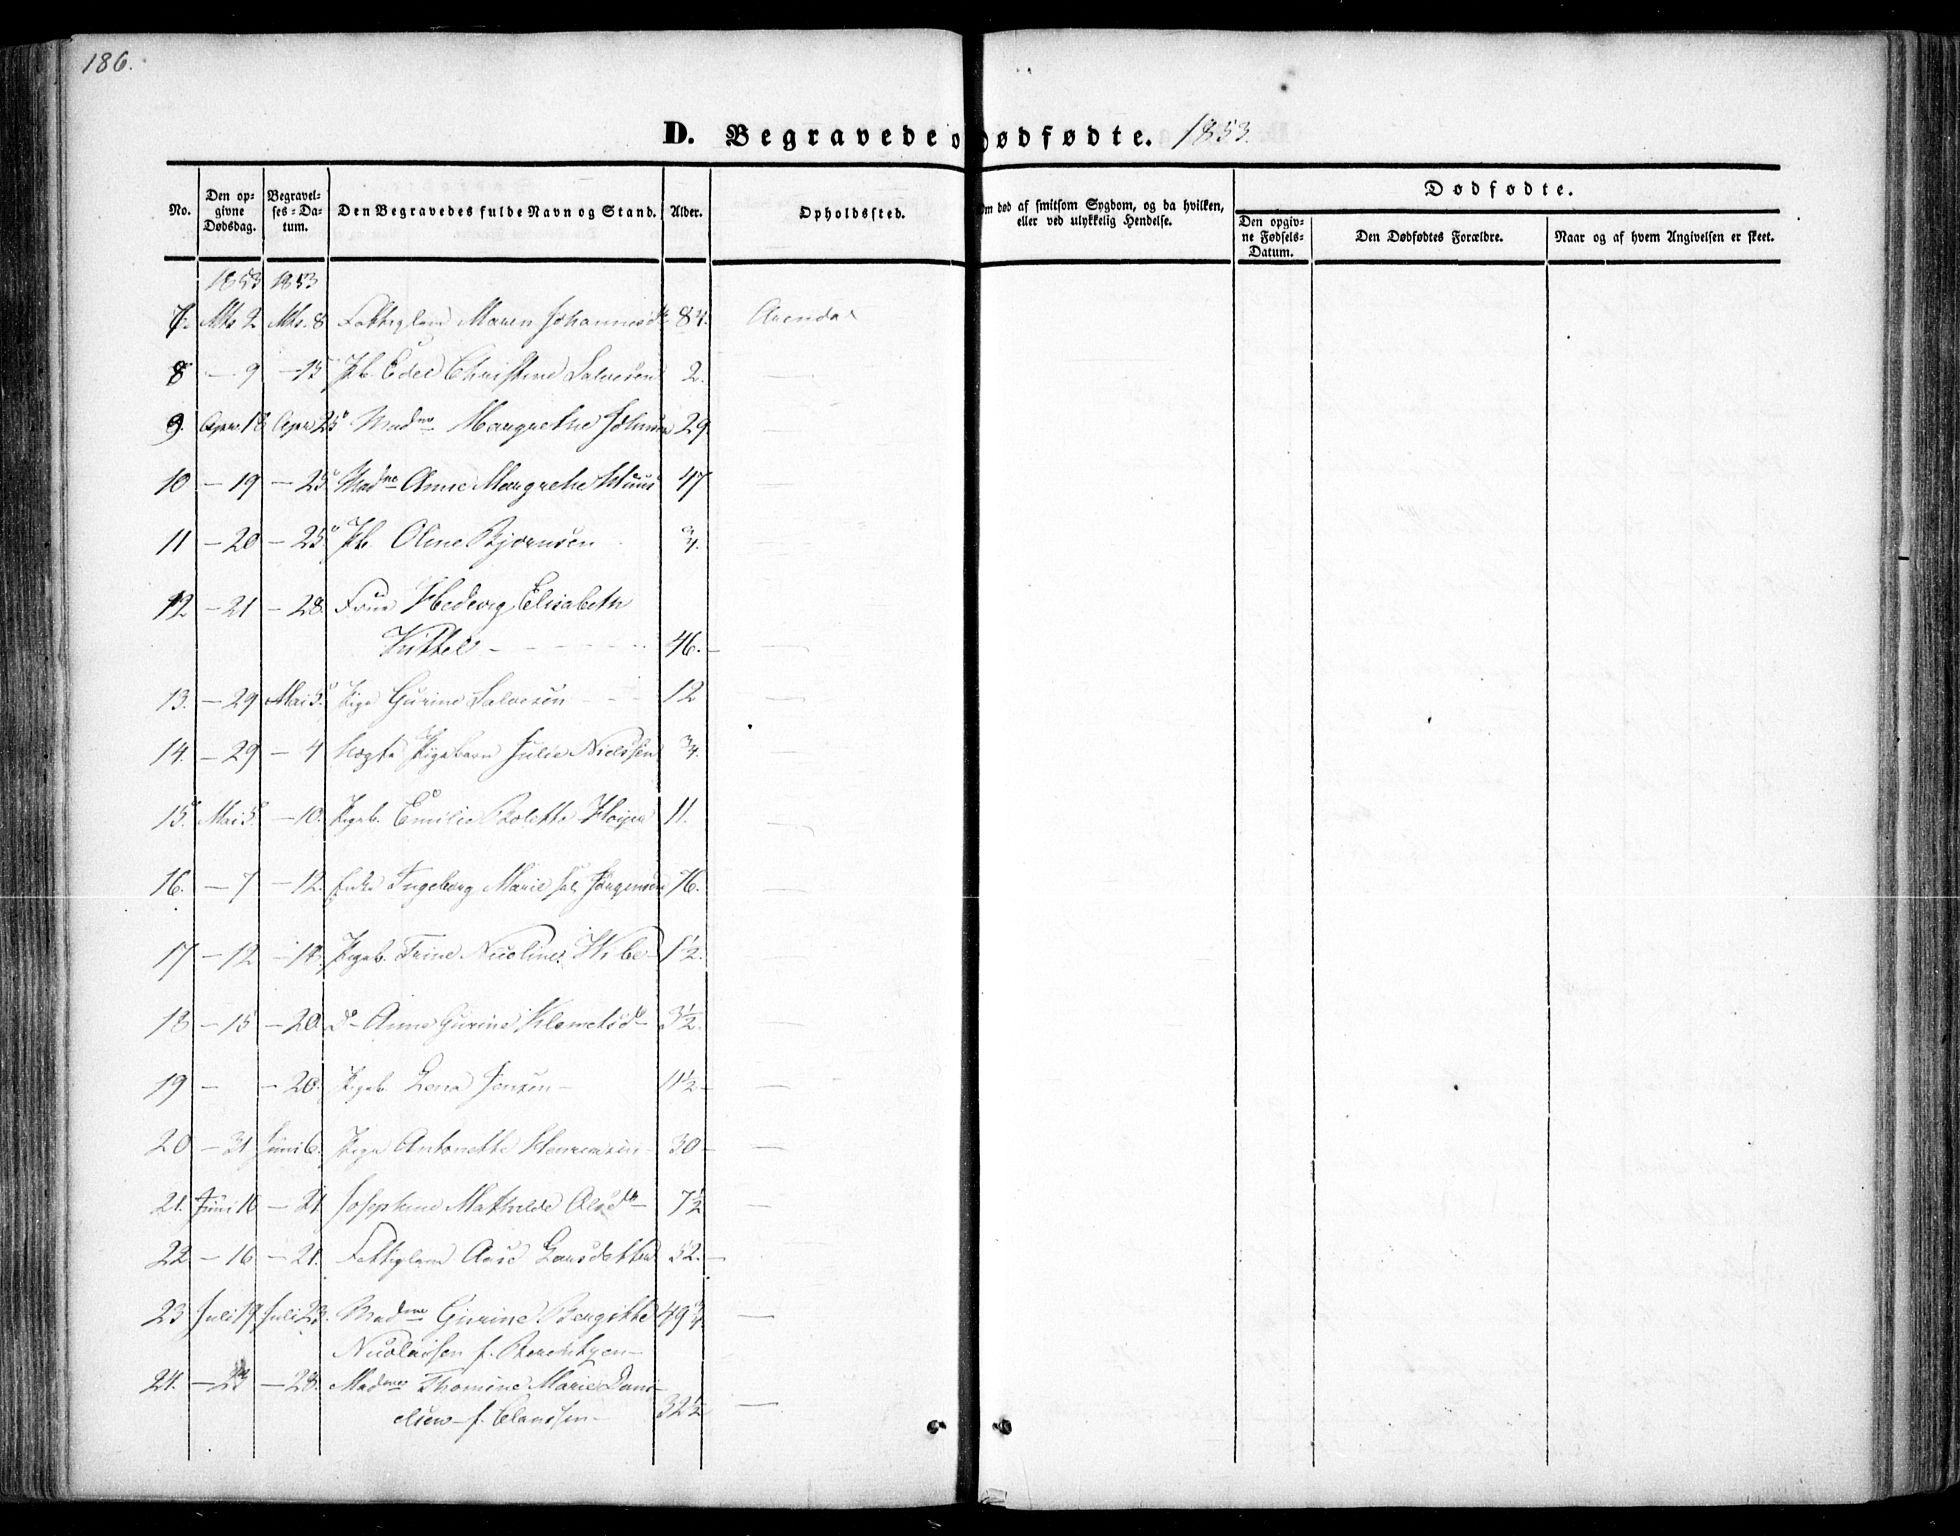 186.
D. Begravede o Dødfødte. 1853.
No. Den opgivne Dødsdag. Begravelses-Datum. Den Begravedes fulde Navn og Stand. Alder. Opholdssted. Om død af smitsom Sygdom, og da hvilken, eller ved ulykkelig Hendelse. Dødfødte.
Den opgivne Fødsels-Datum. Den Dødfødtes Forældre. Naar og af hvem Angivelsen er skeet.
1853 1853
7. Mts 2 Mts. 8 Fattiglem Maren Johannesd. 84. Arendal
8 — 9 — 15 Pb. Edel Christine Salvesen 2. —
9. Apr. 18 Apr 25 Madme Margrethe Johnsen 29. —
10 — 19 — 25 Madme Anne Margrethe Huus 47 —
11 — 20 — 25 Pb. Oline Bjørnsen 3/4. —
12 — 21 — 28. Frue Hedevig Elisabeth
Kittel — 46. — —
13. — 29 Mai 5. Pige Gurine Salvesen 12 —
14. — 29 — 4 Uægte Pigebarn Julie Nielssen 3/4. —
15. Mai 5. — 10. Pigeb. Emilie Bolette Høyer 11. —
16. — 7 — 12. Enke Ingeborg Marie sal. Jørgensen 76. —
17 — 12 — 18. Pigeb. Trine Nicoline Wibe — 1 1/2. —
18 — 15 — 20. do Anne Gurine Klemetsd — 3 1/2. —
19 — — 20. Pigeb. Lena Jensen — 11 1/2 — —
20 — 31 Juni 6. Pige Antonette 30 — —
21. Juni 16 — 21 Josephine Mathilde Olsd — 7 1/2 —
22 — 16 — 21. Fattiglem Aase Larsdatter 52. — —
23 Juli 19 Juli 23. Madme Gurine Bergitte 49 3/4 —
Nicolaisen f. Berentsen —
24. — 23 — 28. Madme Thomine Marie Dani-
elsen — f. Clausen — 32 1/2 —